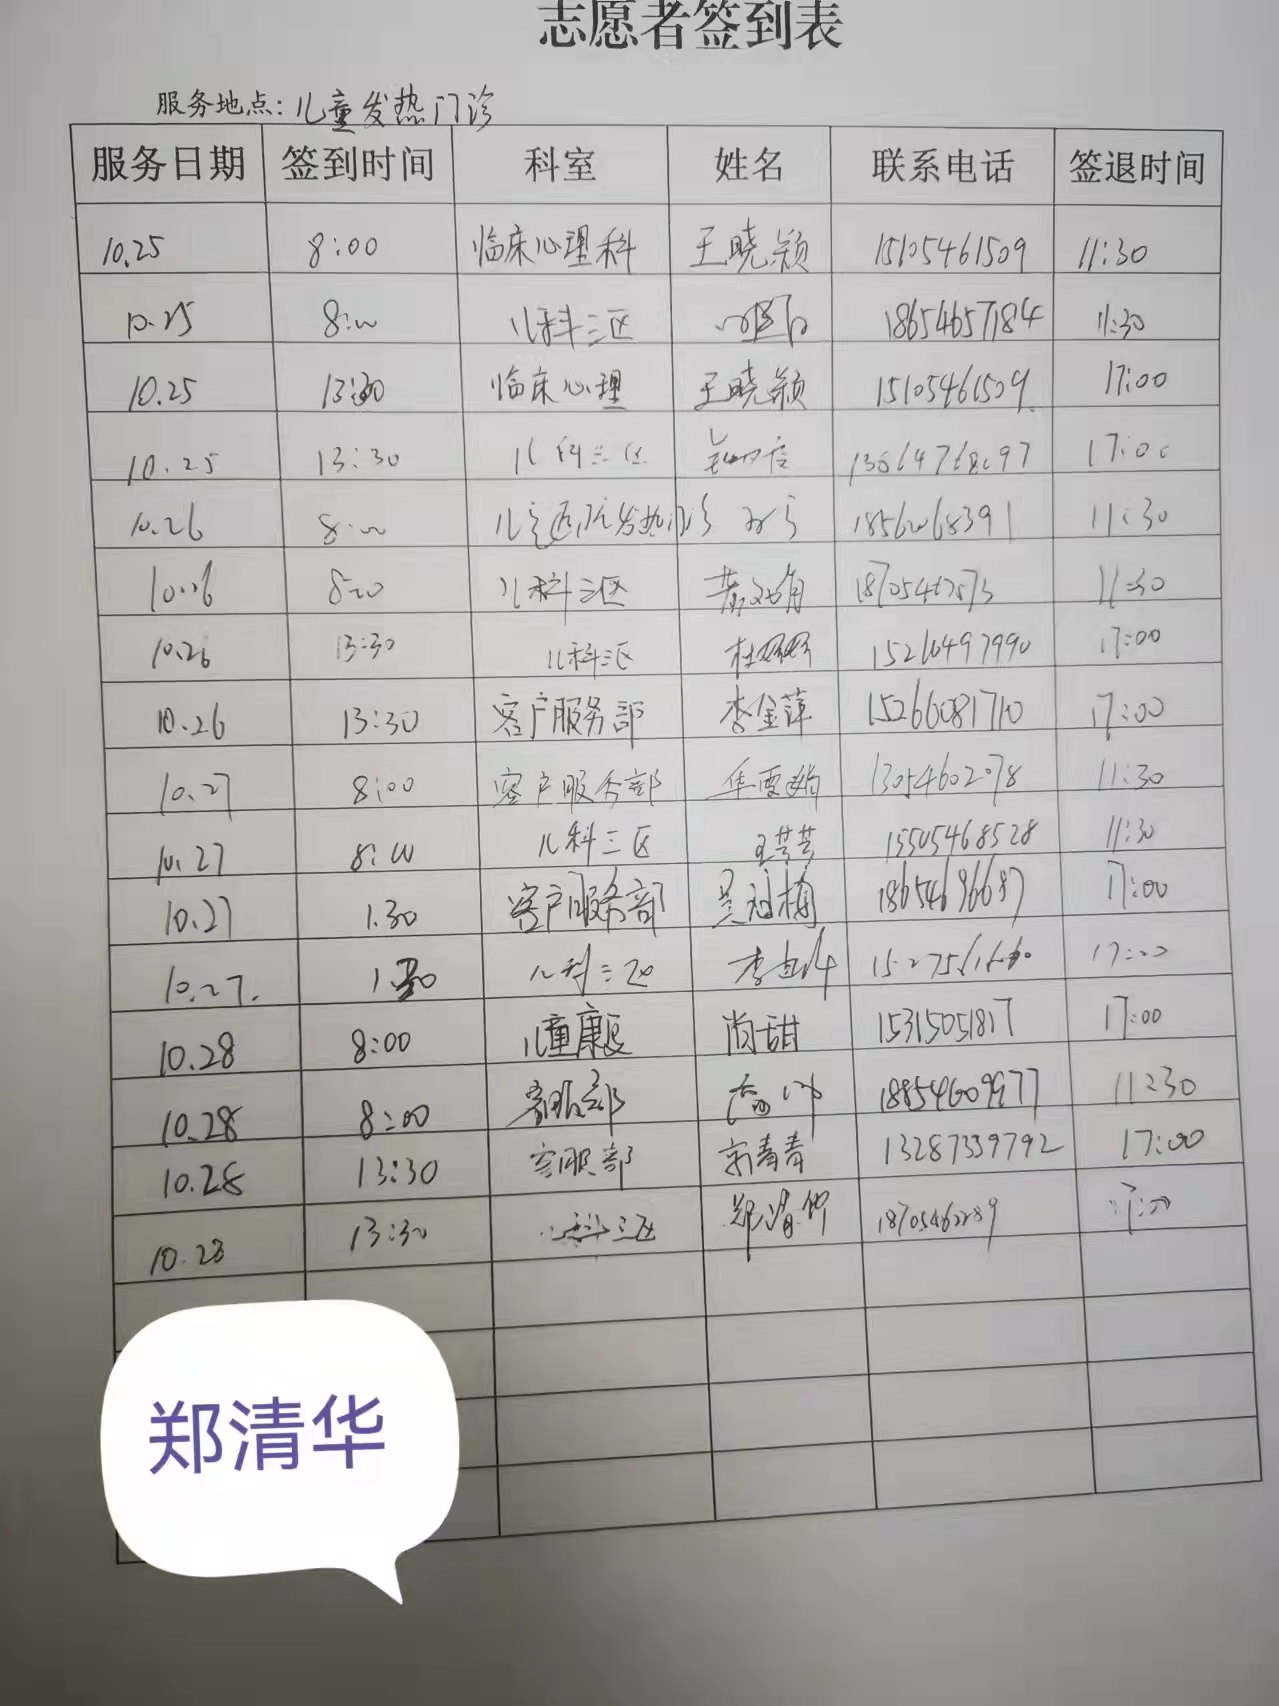 志愿者签到表
服务地点：儿童发热门诊
服务日期 签到时间 科室 姓名 联系电话 签退时间
10.25 8:00 临床心理科 王晓颖 15105461509 11:30
10.25 8:00 儿科三区 18654657184 11:30
10.25 13:30 临床心理 王晓颖 15105461509 17:00
10.25 13:30 儿科三区 17:00
10.26 8:00 11:30
10.26 8:00 儿科三区 11:30
10.26 13:30 儿科三区 17:00
10.26 13:30 客户服务部 李金萍 15266081710 17:00
10.27 8:00 客户服务部 13054602078 11:30
10.27 8:00 儿科三区 王芸芸 15505468528 11:30
10.27 1.30 客户服务部 18654696687 17:00
10.27. 1.30 儿科三区 17:00
10.28 8:00 儿童康复 尚甜 15315051817 17:00
10.28 8:00 客服部 18854609977 11:30
10.28 13:30 客服部 宋青青 13287339792 17:00
10.28 13:30 儿科三区 郑清华 18705462289 17:00
郑清华